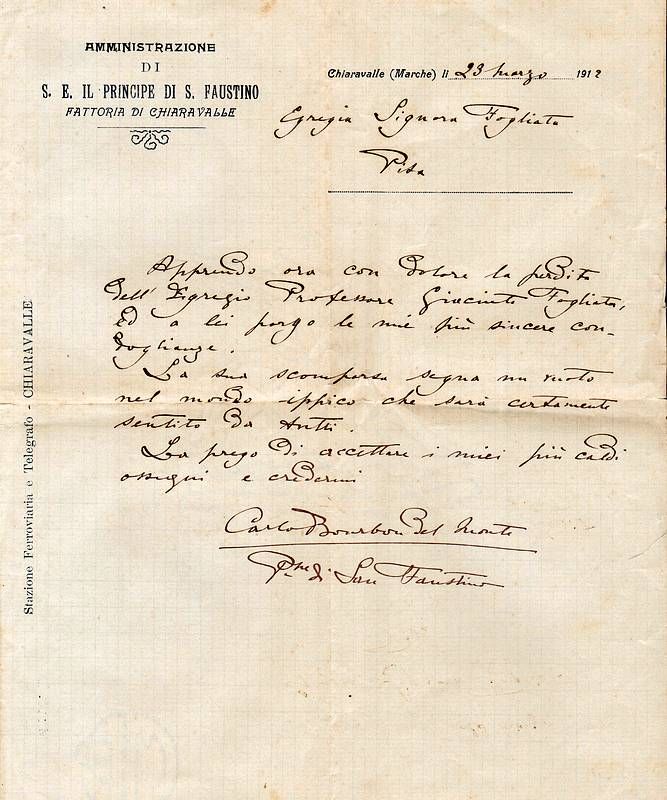 AMMINISTRAZIONE
DI
S. E. IL PRINCIPE DI S. FAUSTINO
FATTORIA DI CHIARAVALLE
Chiaravalle (Marche) li 23 marzo 1912
Egregia Signora Fogliata
Pisa
Apprendo ora con dolore la perdita
dell' Egregio Professore Giacinto Fogliata,
ed a lei porgo le mie più sincere con-
doglianze.
La sua scomparsa segna un vuoto
nel mondo ippico che sarà certamente
sentito da tutti.
La prego di accettare i miei più caldi
ossequi e credermi
Carlo Bourbon del Monte
P.pe di San Faustino
Stazione Ferroviaria e Telegrafo - CHIARAVALLE